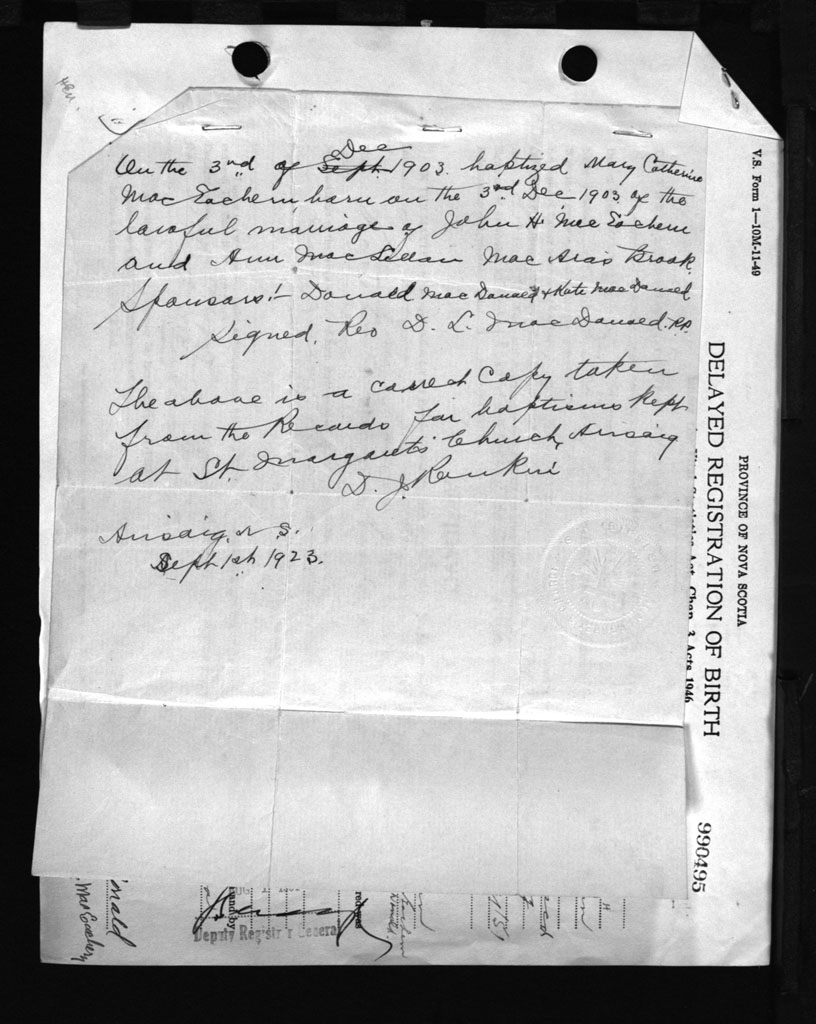 On the 3rd of Sept. Dec 1903. baptized Mary Catherine
MacEachern born on the 3rd Dec 1903 of the
lawful marriage of John H. MacEachern
and Ann MacLellan MacAras Brook.
Sponsors:- Donald MacDonald & Kate MacDonald
Signed. Rev D. L. MacDonald. P.P.
The above is a correct Copy taken
from the Records for baptisms Kept
at St. Margarets Church, Arisaig
D. J. Rankin
Arisaig N.S.
Sept 1st 1923.
V.S. Form 1—10M-11-49
PROVINCE OF NOVA SCOTIA
DELAYED REGISTRATION OF BIRTH
Act, Chap. 3 Acts 1946
990495
Deputy Registr r General
MacEachern